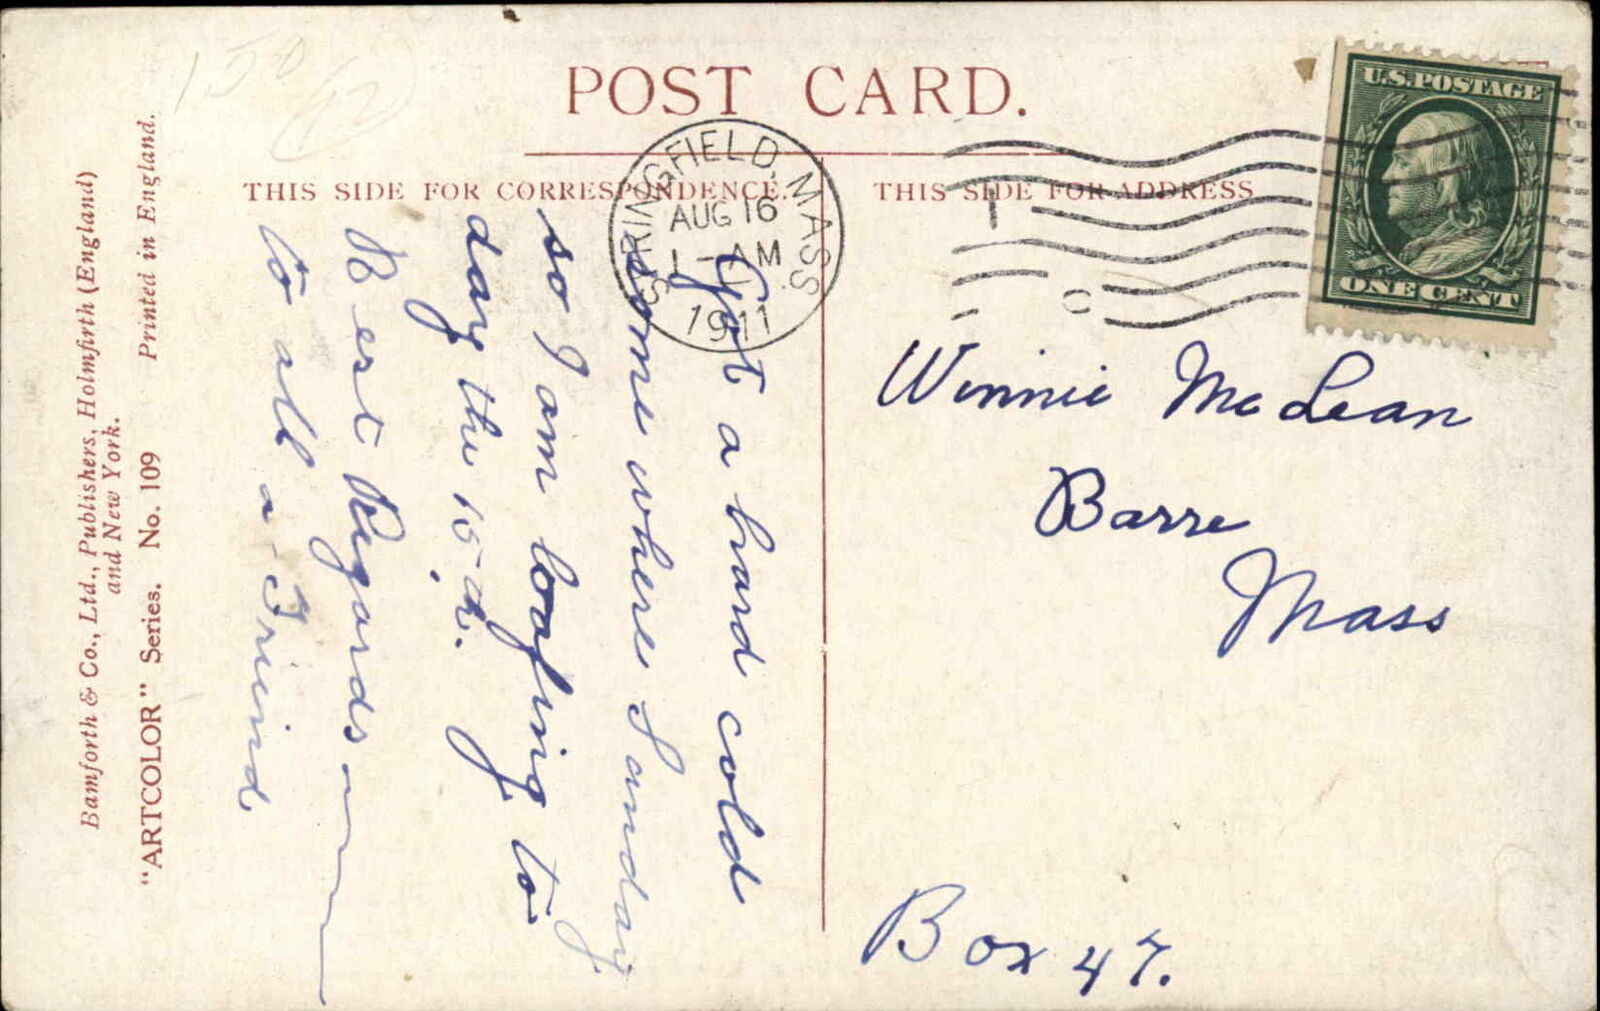 150
12
POST CARD.
THIS SIDE FOR CORRESPONDENCE.
THIS SIDE FOR ADDRESS
SPRINGFIELD, MASS
AUG 16
1-AM
1911
U.S. POSTAGE
ONE CENT
Got a hard cold
some where Sunday
so I am loafing to
day the 15 d.
Best Regards
to all a Freind
Winnie McLean
Barre
Mass
Box 47.
Bamforth & Co., Ltd., Publishers, Holmfirth (England)
and New York.
"ARTCOLOR" Series. No. 109 Printed in England.